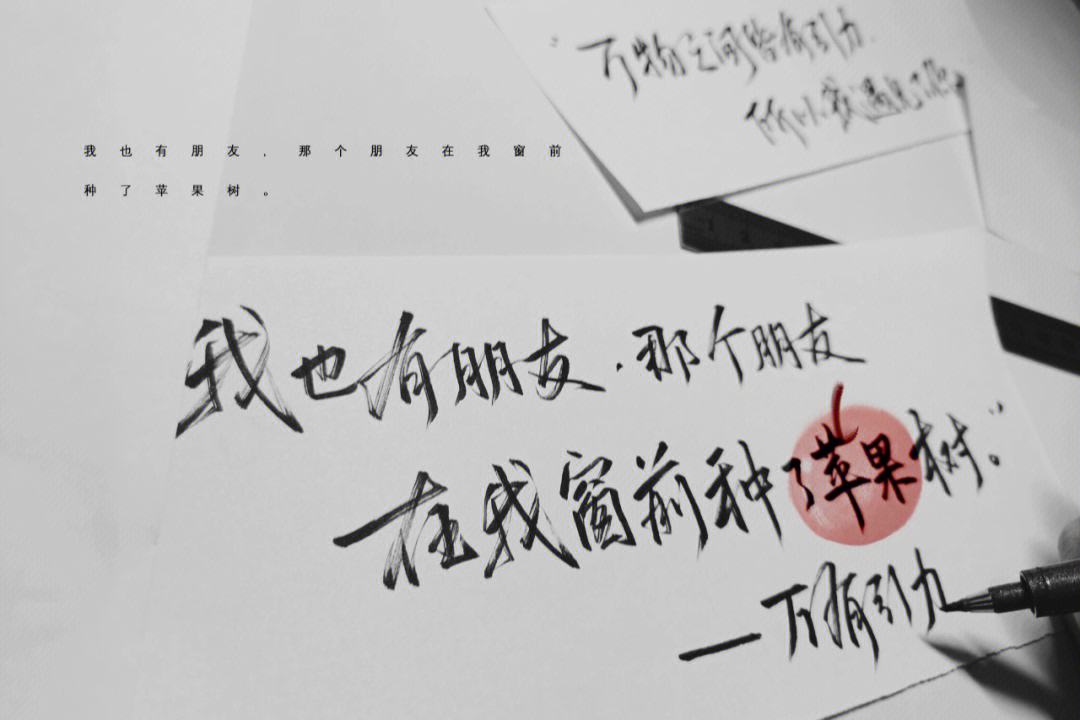 “万物之间皆有引力.
所以我遇见了你
我也有朋友，那个朋友在我窗前
种了苹果树。
我也有朋友.那个朋友
在我窗前种了苹果树。”
—万有引力